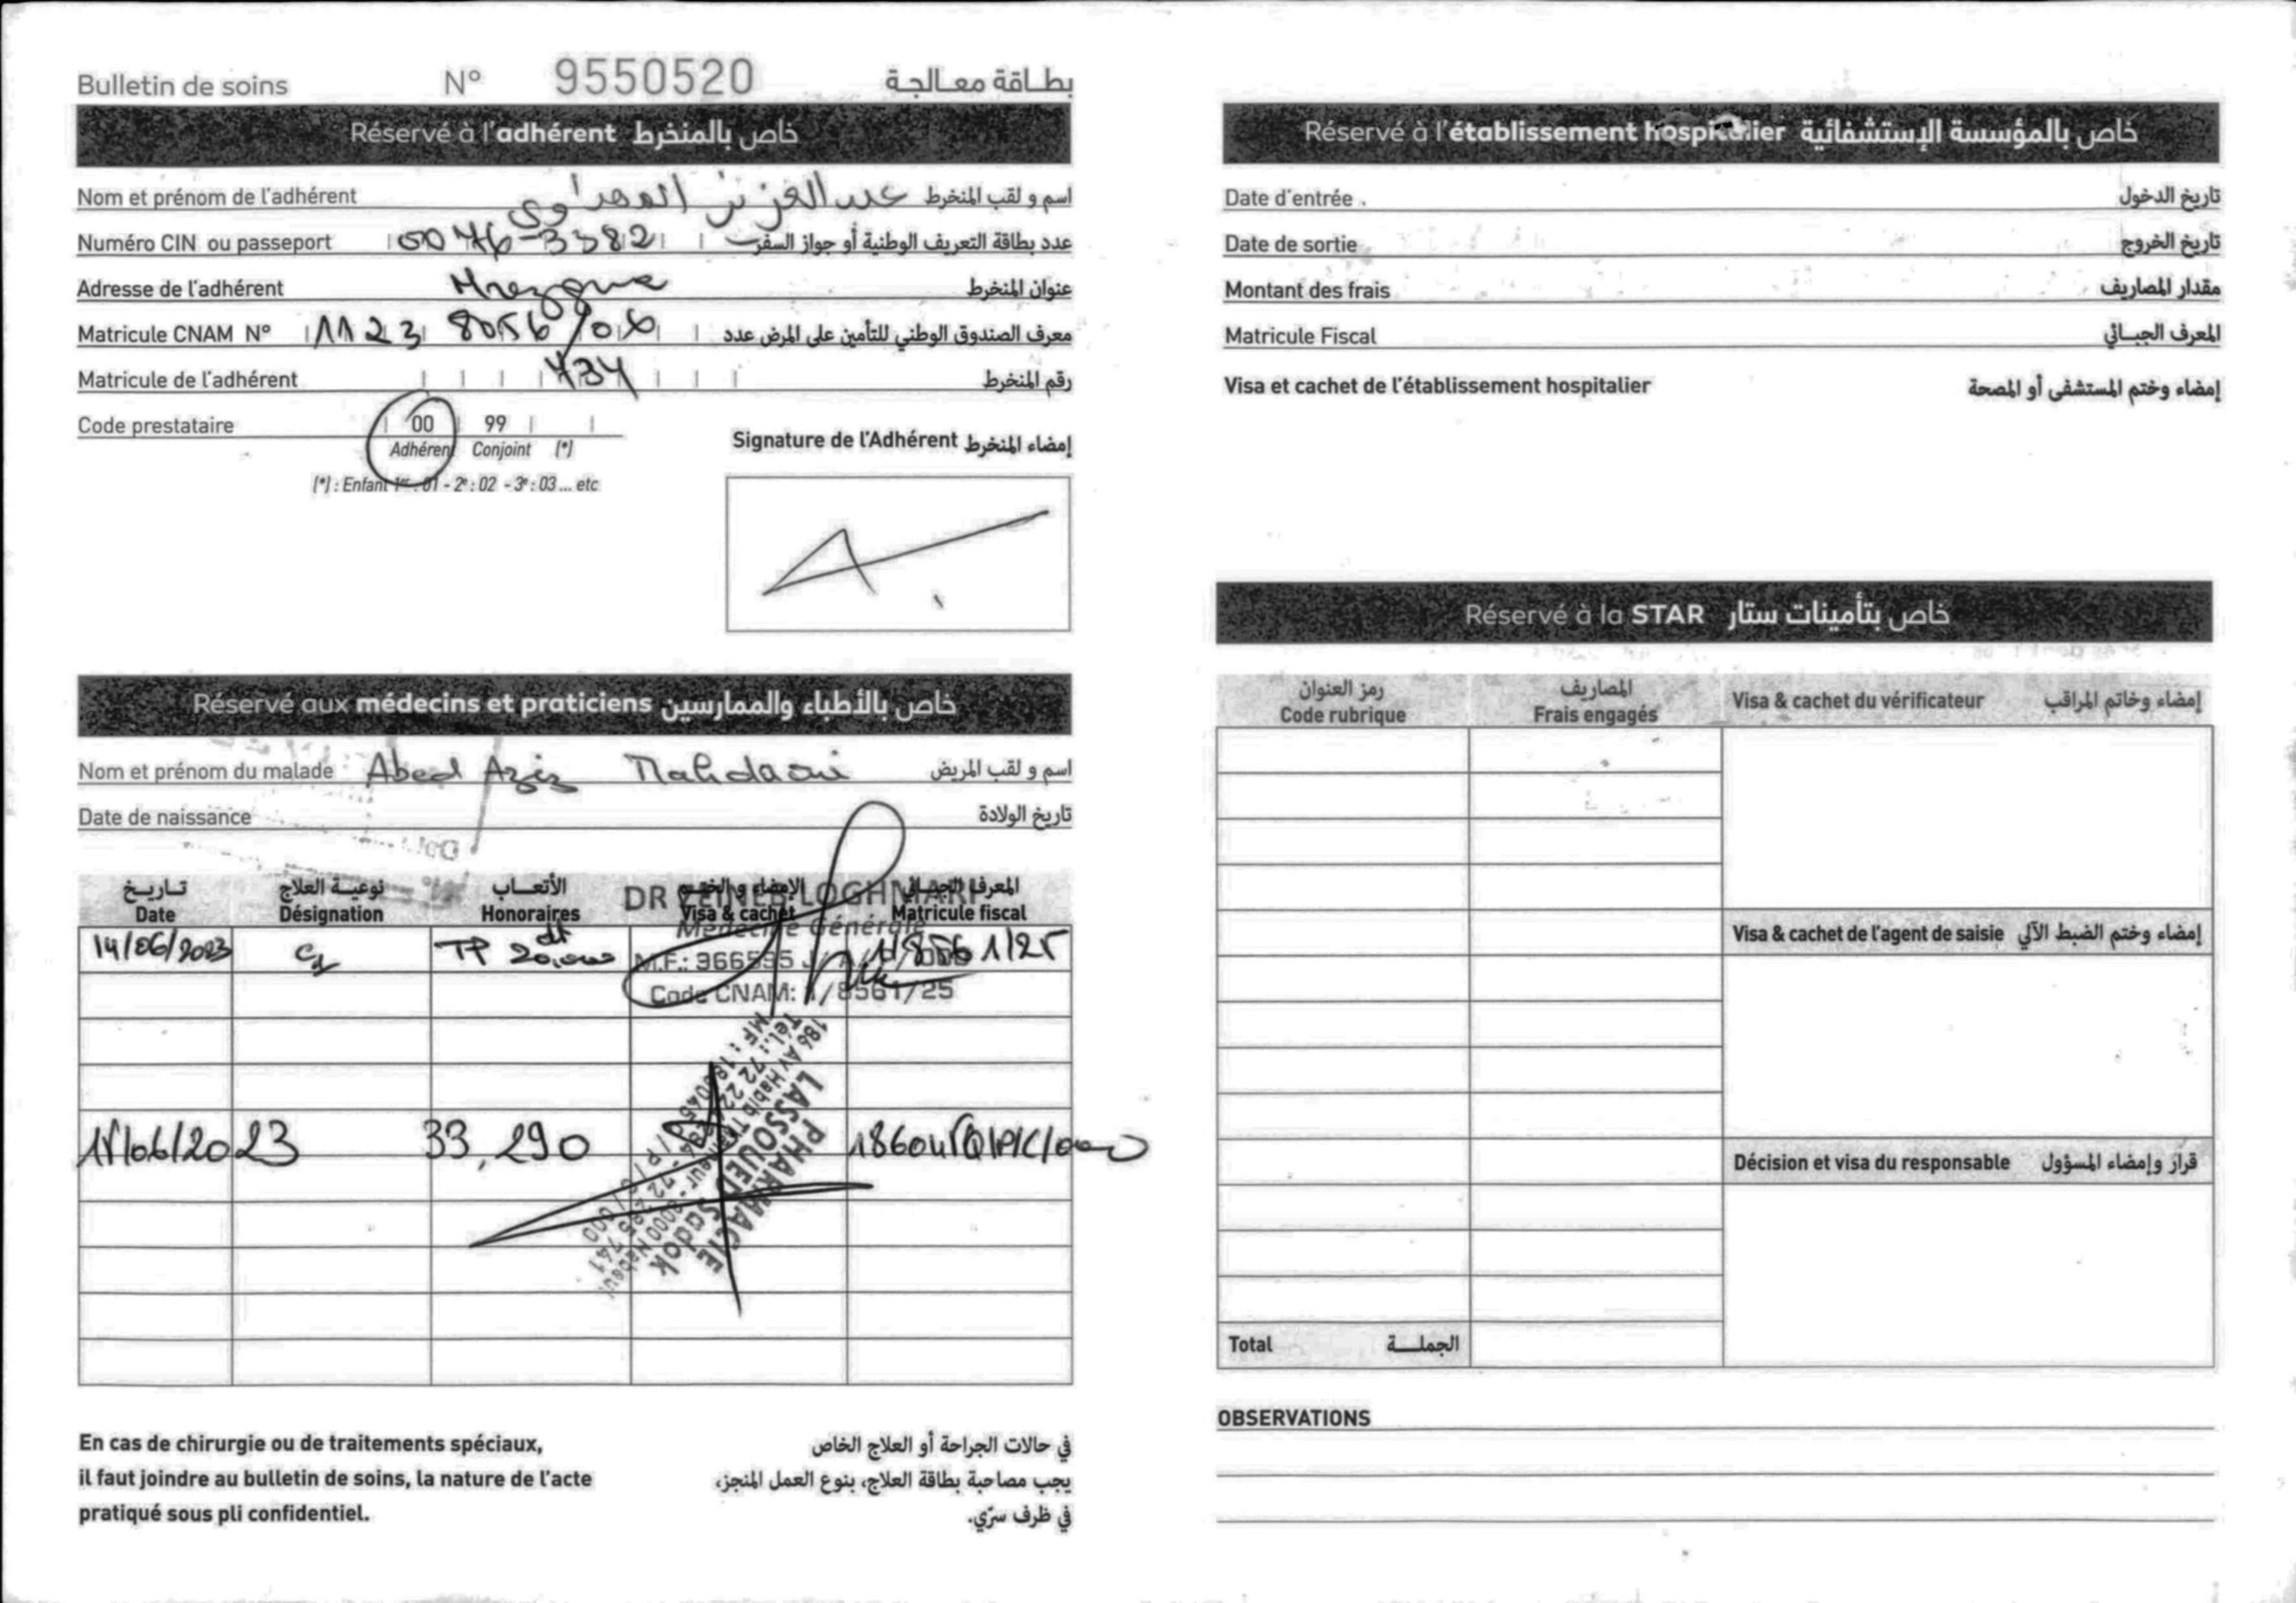 Bulletin de soins N° 9550520 بطاقة معالجة
Réservé à l'adhérent خاص بالمنخرط
Nom et prénom de l'adhérent عبد العزيز المهداوي اسم و لقب المنخرط
Numéro CIN ou passeport عدد بطاقة التعريف الوطنية أو جواز السفر
Adresse de l'adhérent Mrezgua عنوان المنخرط
Matricule CNAM N° 1123 8056/06 معرف الصندوق الوطني للتأمين على المرض عدد
Matricule de l'adhérent 434 رقم المنخرط
Code prestataire 00 99
Adhérent Conjoint (*)
(*) : Enfant 1er : 01 - 2e : 02 - 3e : 03 ... etc
Signature de l'Adhérent إمضاء المنخرط
Réservé aux médecins et praticiens خاص بالأطباء والممارسين
Nom et prénom du malade Abed Aziz Mahdaoui اسم و لقب المريض
Date de naissance تاريخ الولادة
تاريخ نوعية العلاج الأتعاب الإمضاء و الختم المعرف الجبائي
Date Désignation Honoraires Visa & cachet Matricule fiscal
DR ZEINEB LOGHMARI
Médecine Générale
14/06/2023 TP 20,000 dt 1/8561/25
Code CNAM: 1/8561/25
186 Av Habib Thameur - 8000 Nabeul
PHARMACIE
LASSOUED Sadok
33,290
En cas de chirurgie ou de traitements spéciaux,
il faut joindre au bulletin de soins, la nature de l'acte
pratiqué sous pli confidentiel.
في حالات الجراحة أو العلاج الخاص
يجب مصاحبة بطاقة العلاج، بنوع العمل المنجز،
في ظرف سرّي.
Réservé à l'établissement hospitalier خاص بالمؤسسة الإستشفائية
Date d'entrée تاريخ الدخول
Date de sortie تاريخ الخروج
Montant des frais مقدار المصاريف
Matricule Fiscal المعرف الجبائي
Visa et cachet de l'établissement hospitalier إمضاء وختم المستشفى أو المصحة
Réservé à la STAR خاص بتأمينات ستار
رمز العنوان المصاريف
Code rubrique Frais engagés Visa & cachet du vérificateur إمضاء وخاتم المراقب
Visa & cachet de l'agent de saisie إمضاء وختم الضبط الآلي
Décision et visa du responsable قرار وإمضاء المسؤول
Total الجملة
OBSERVATIONS